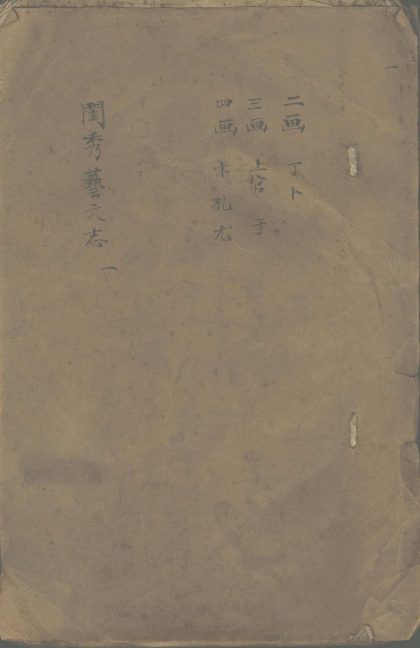 一
二画 丁 卜
三画 上官 于
四画 卞 孔 尤
閨秀藝文志 一